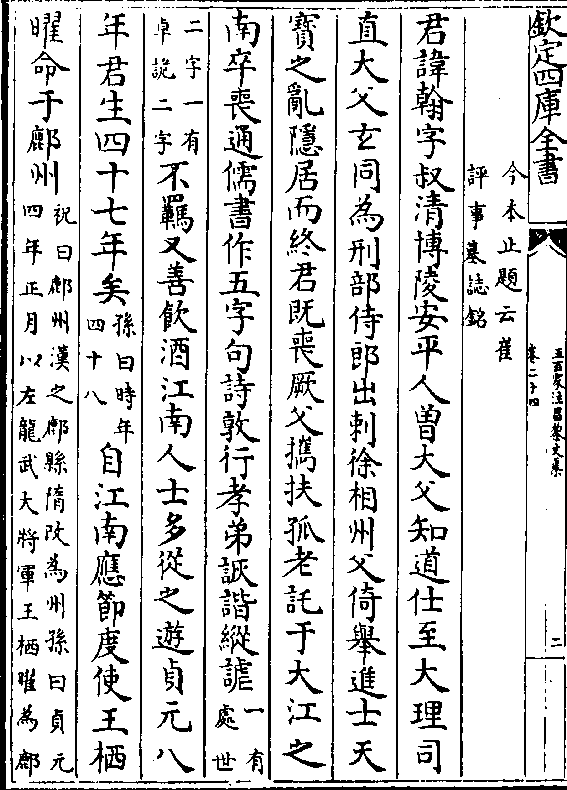 欽定四庫全書
五百家注昌黎文集
卷二十四
二
今本止題云崔
評事墓誌銘
君諱翰字叔清博陵安平人曽大父知道仕至大理司
直大父玄同為刑部侍郎出刺徐相州父倚舉進士天
寳之亂隱居而終君既喪厥父擕扶孤老託于大江之
南卒喪通儒書作五字句詩敦行孝弟詼諧縱謔一有
處世
二字一有
卓詭二字不羈又善飲酒江南人士多從之遊貞元八
年君生四十七年矣孫曰時年
四十八自江南應節度使王栖
曜命于鄜州祝曰鄜州漢之鄜縣隋改為州孫曰貞元
四年正月以左龍武大將軍王栖曜為鄜